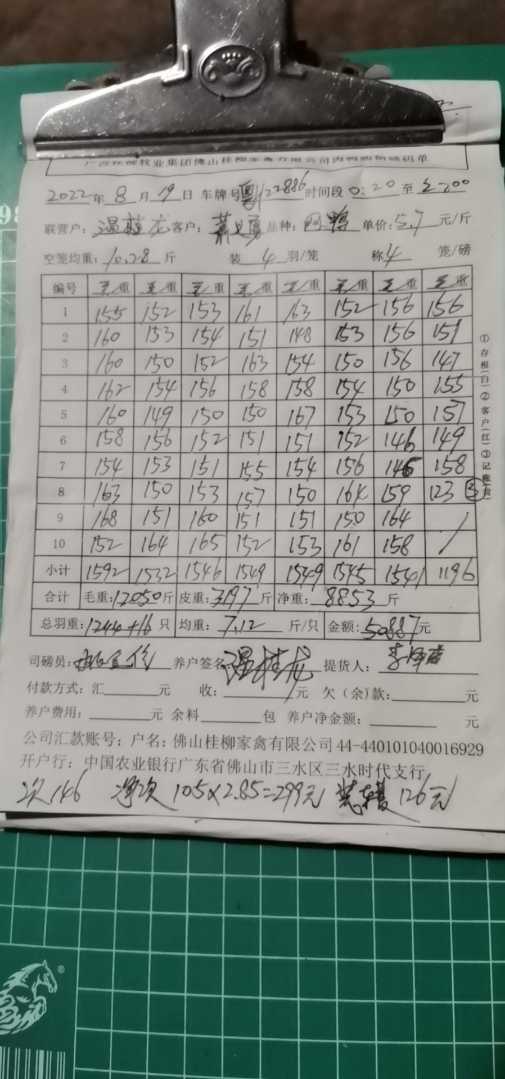 2022年8月19日 车牌号 22886 时间段 0:20 至 2:00
联营户: 温桂龙 客户: 品种: 鸭 单价: 5.7 元/斤
空笼均重: 10.28 斤 装 4 羽/笼 称 4 笼/磅
编号 毛/重 毛/重 毛/重 毛/重 毛/重 毛/重 毛/重 毛/重
1 155 152 153 161 163 152 156 156
2 160 153 154 151 148 153 156 151
3 160 150 152 163 154 150 156 147
4 162 154 156 158 158 154 150 155
5 160 149 150 150 167 153 150 157
6 158 156 152 151 151 152 146 149
7 154 153 151 155 154 156 146 158
8 163 150 153 157 150 164 159 123
9 168 151 160 151 151 150 164 /
10 152 164 165 152 153 161 158 /
小计 1592 1532 1546 1549 1549 1545 1541 1196
合计 毛重: 12050 斤 皮重: 3197 斤 净重: 8853 斤
总羽重: 1244+16 只 均重: 7.12 斤/只 金额: 50887 元
司磅员: 养户签名: 温桂龙 提货人:
付款方式: 汇 元 收: 元 欠(余)款: 元
养户费用: 元 余料 包 养户净金额: 元
公司汇款账号: 户名: 佛山桂柳家禽有限公司 44-440101040016929
开户行: 中国农业银行广东省佛山市三水区三水时代支行
次146 净次 105×2.85=299元 126元
①存根(白)②客户(红)③记账(黄)